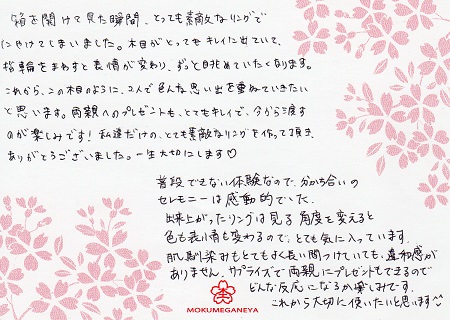 箱を開けて見た瞬間、とっても素敵なリングで
にやけてしまいました。木目がとってもキレイに出ていて、
指輪をまわすと表情が変わり、ずっと眺めていたくなります。
これから、この木目のように、2人で色んな思い出を重ねていきたい
と思います。両親へのプレゼントも、とてもキレイで、今から渡す
のが楽しみです！私達だけの、とても素敵なリングを作って頂き、
ありがとうございました。一生大切にします♡
普段できない体験なので、分かち合いの
セレモニーは感動的でした。
出来上がったリングは見る角度を変えると
色も表情も変わるので、とても気に入っています。
肌馴染みもとてもよく長い間つけていても、違和感が
ありません。サプライズで両親にプレゼントもできるので
どんな反応になるか楽しみです。
これから大切に使いたいと思います
MOKUMEGANEYA